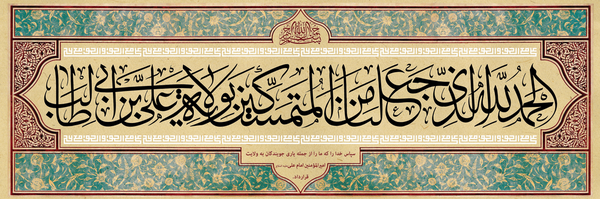 بسم الله الرحمن الرحیم
الحمد لله الذی جعلنا من المتمسکین بولایة علی بن ابی طالب
سپاس خدا را که ما را از جمله یاری جویندگان به ولایت
امیرالمؤمنین امام علی
قرار داد.